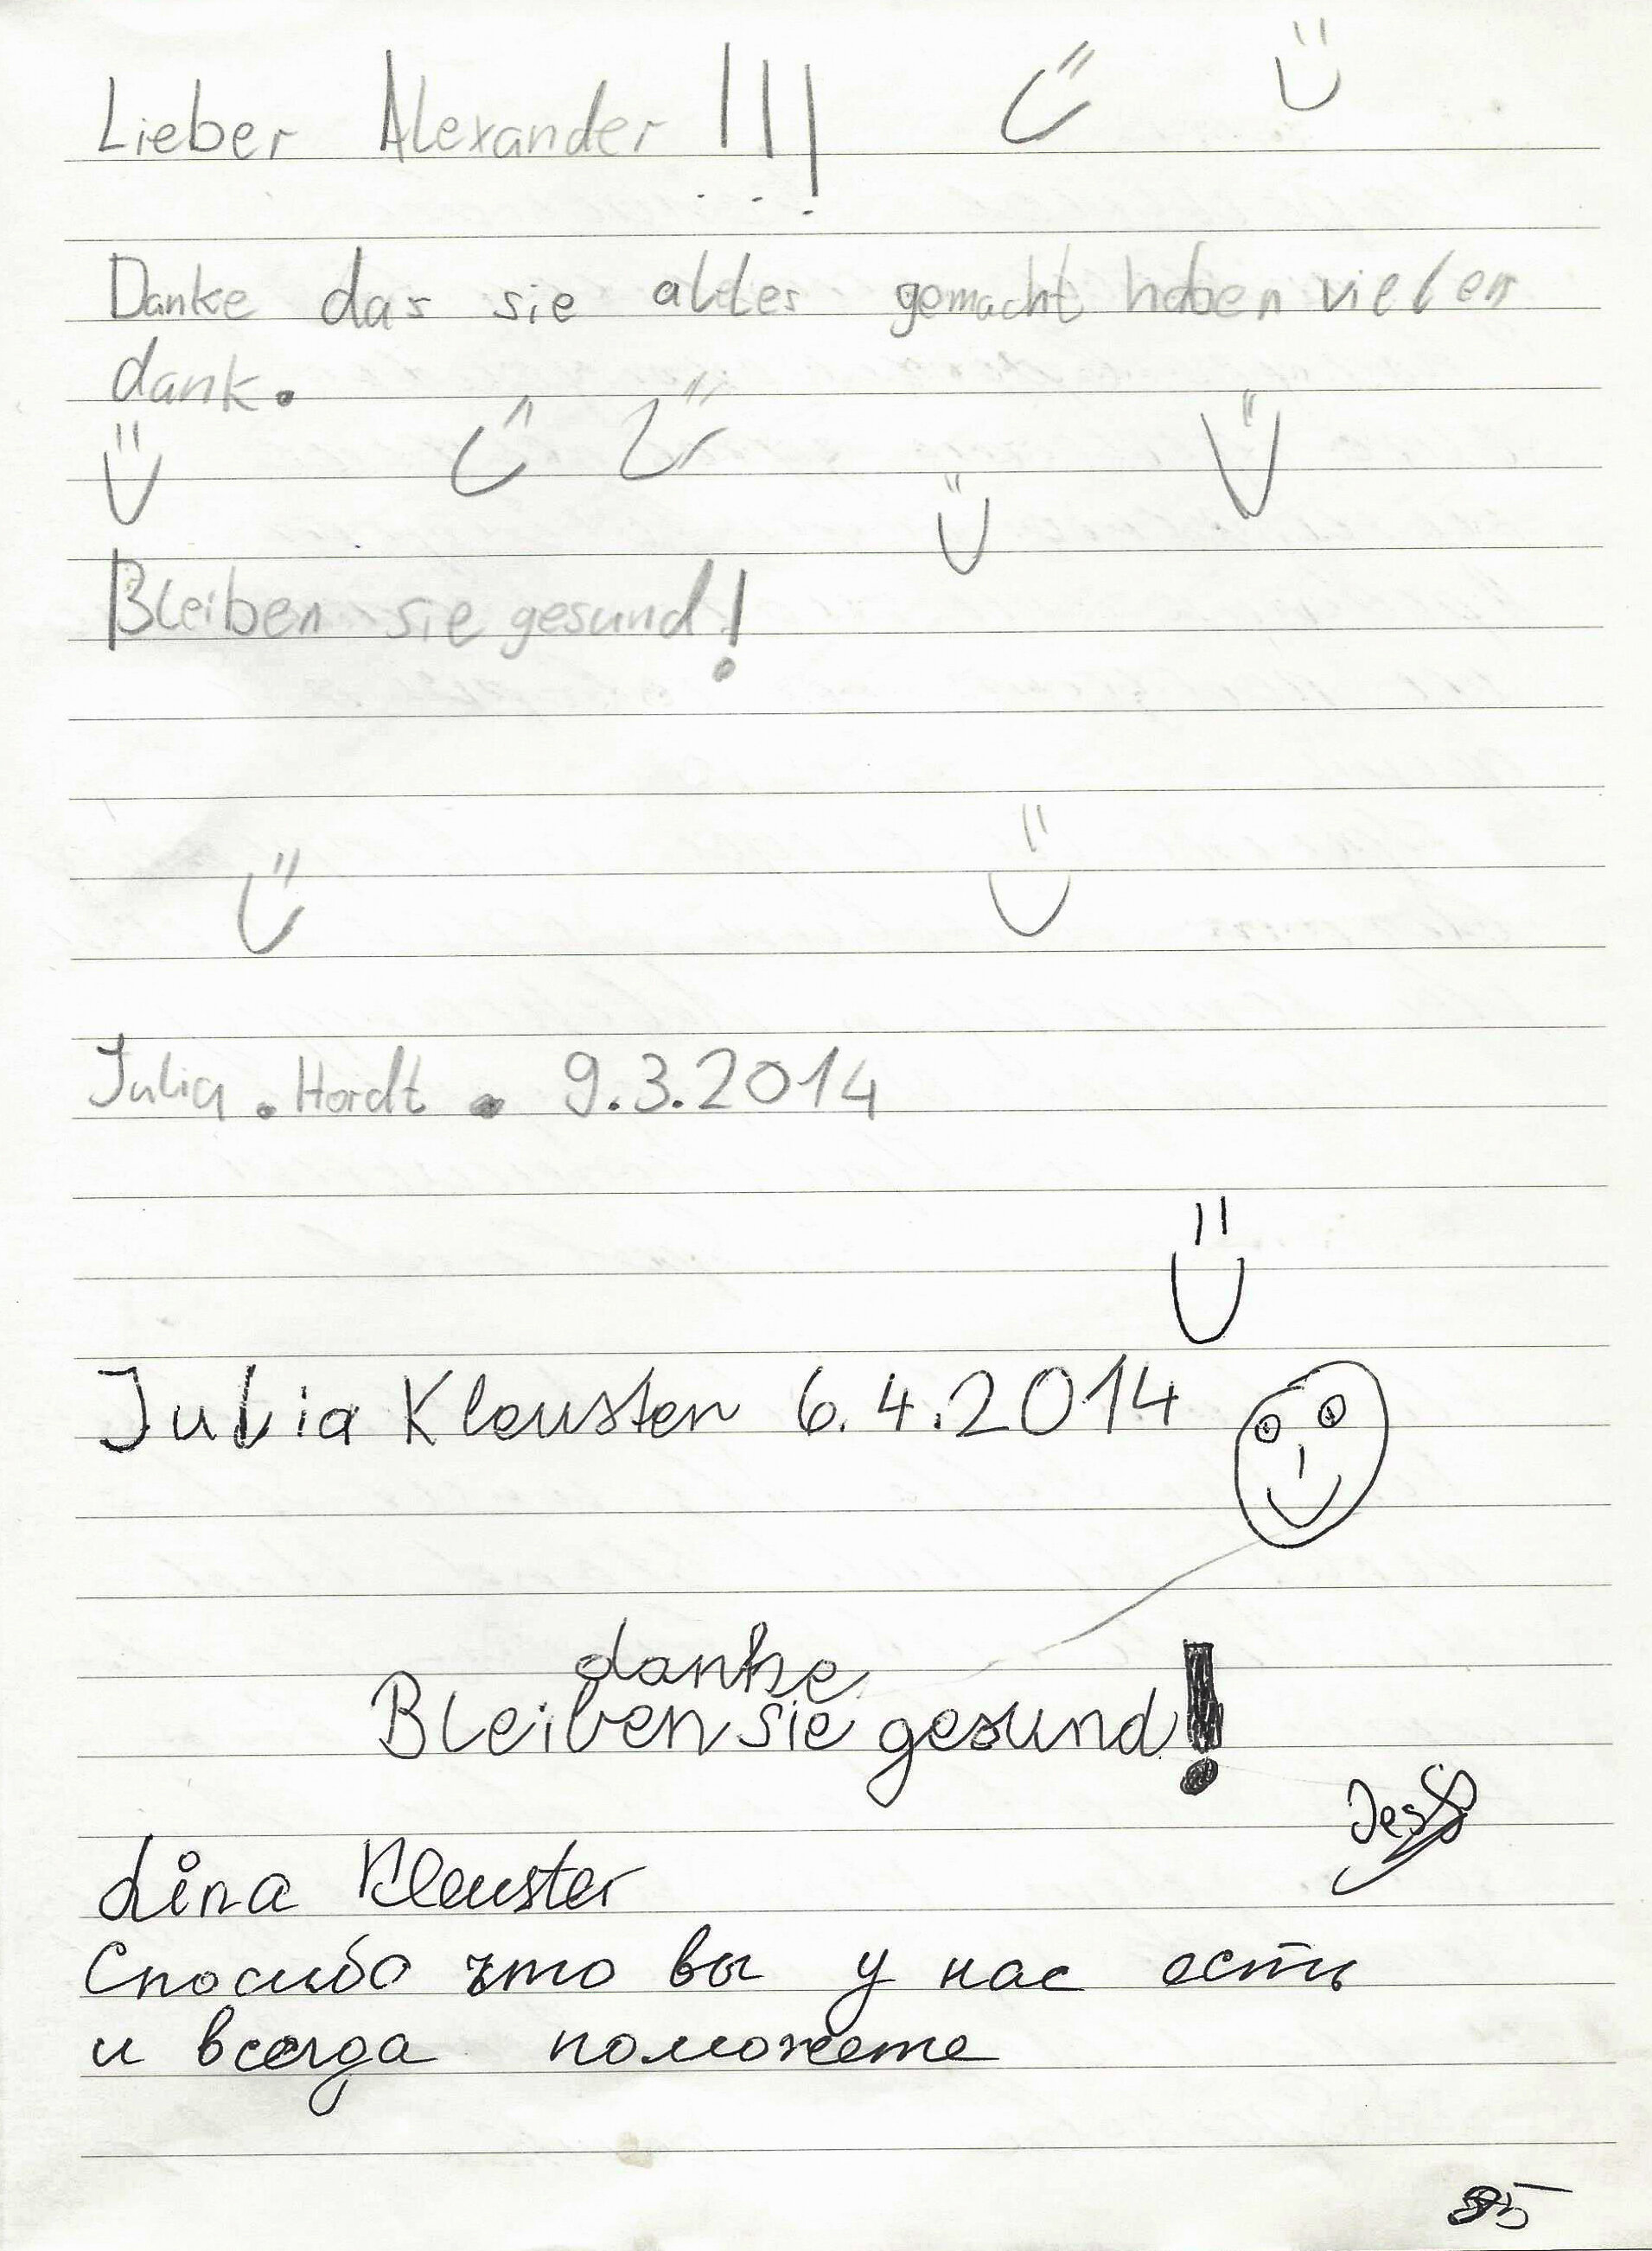 Lieber Alexander !!!
Danke das sie alles gemacht haben vielen
dank.
Bleiben sie gesund!
Julia . Hardt . 9.3.2014
Julia Kleuster 6.4.2014
danke
Bleiben sie gesund!
Lina Kleuster
Спосибо что вы у нас есть
и всегда поможете